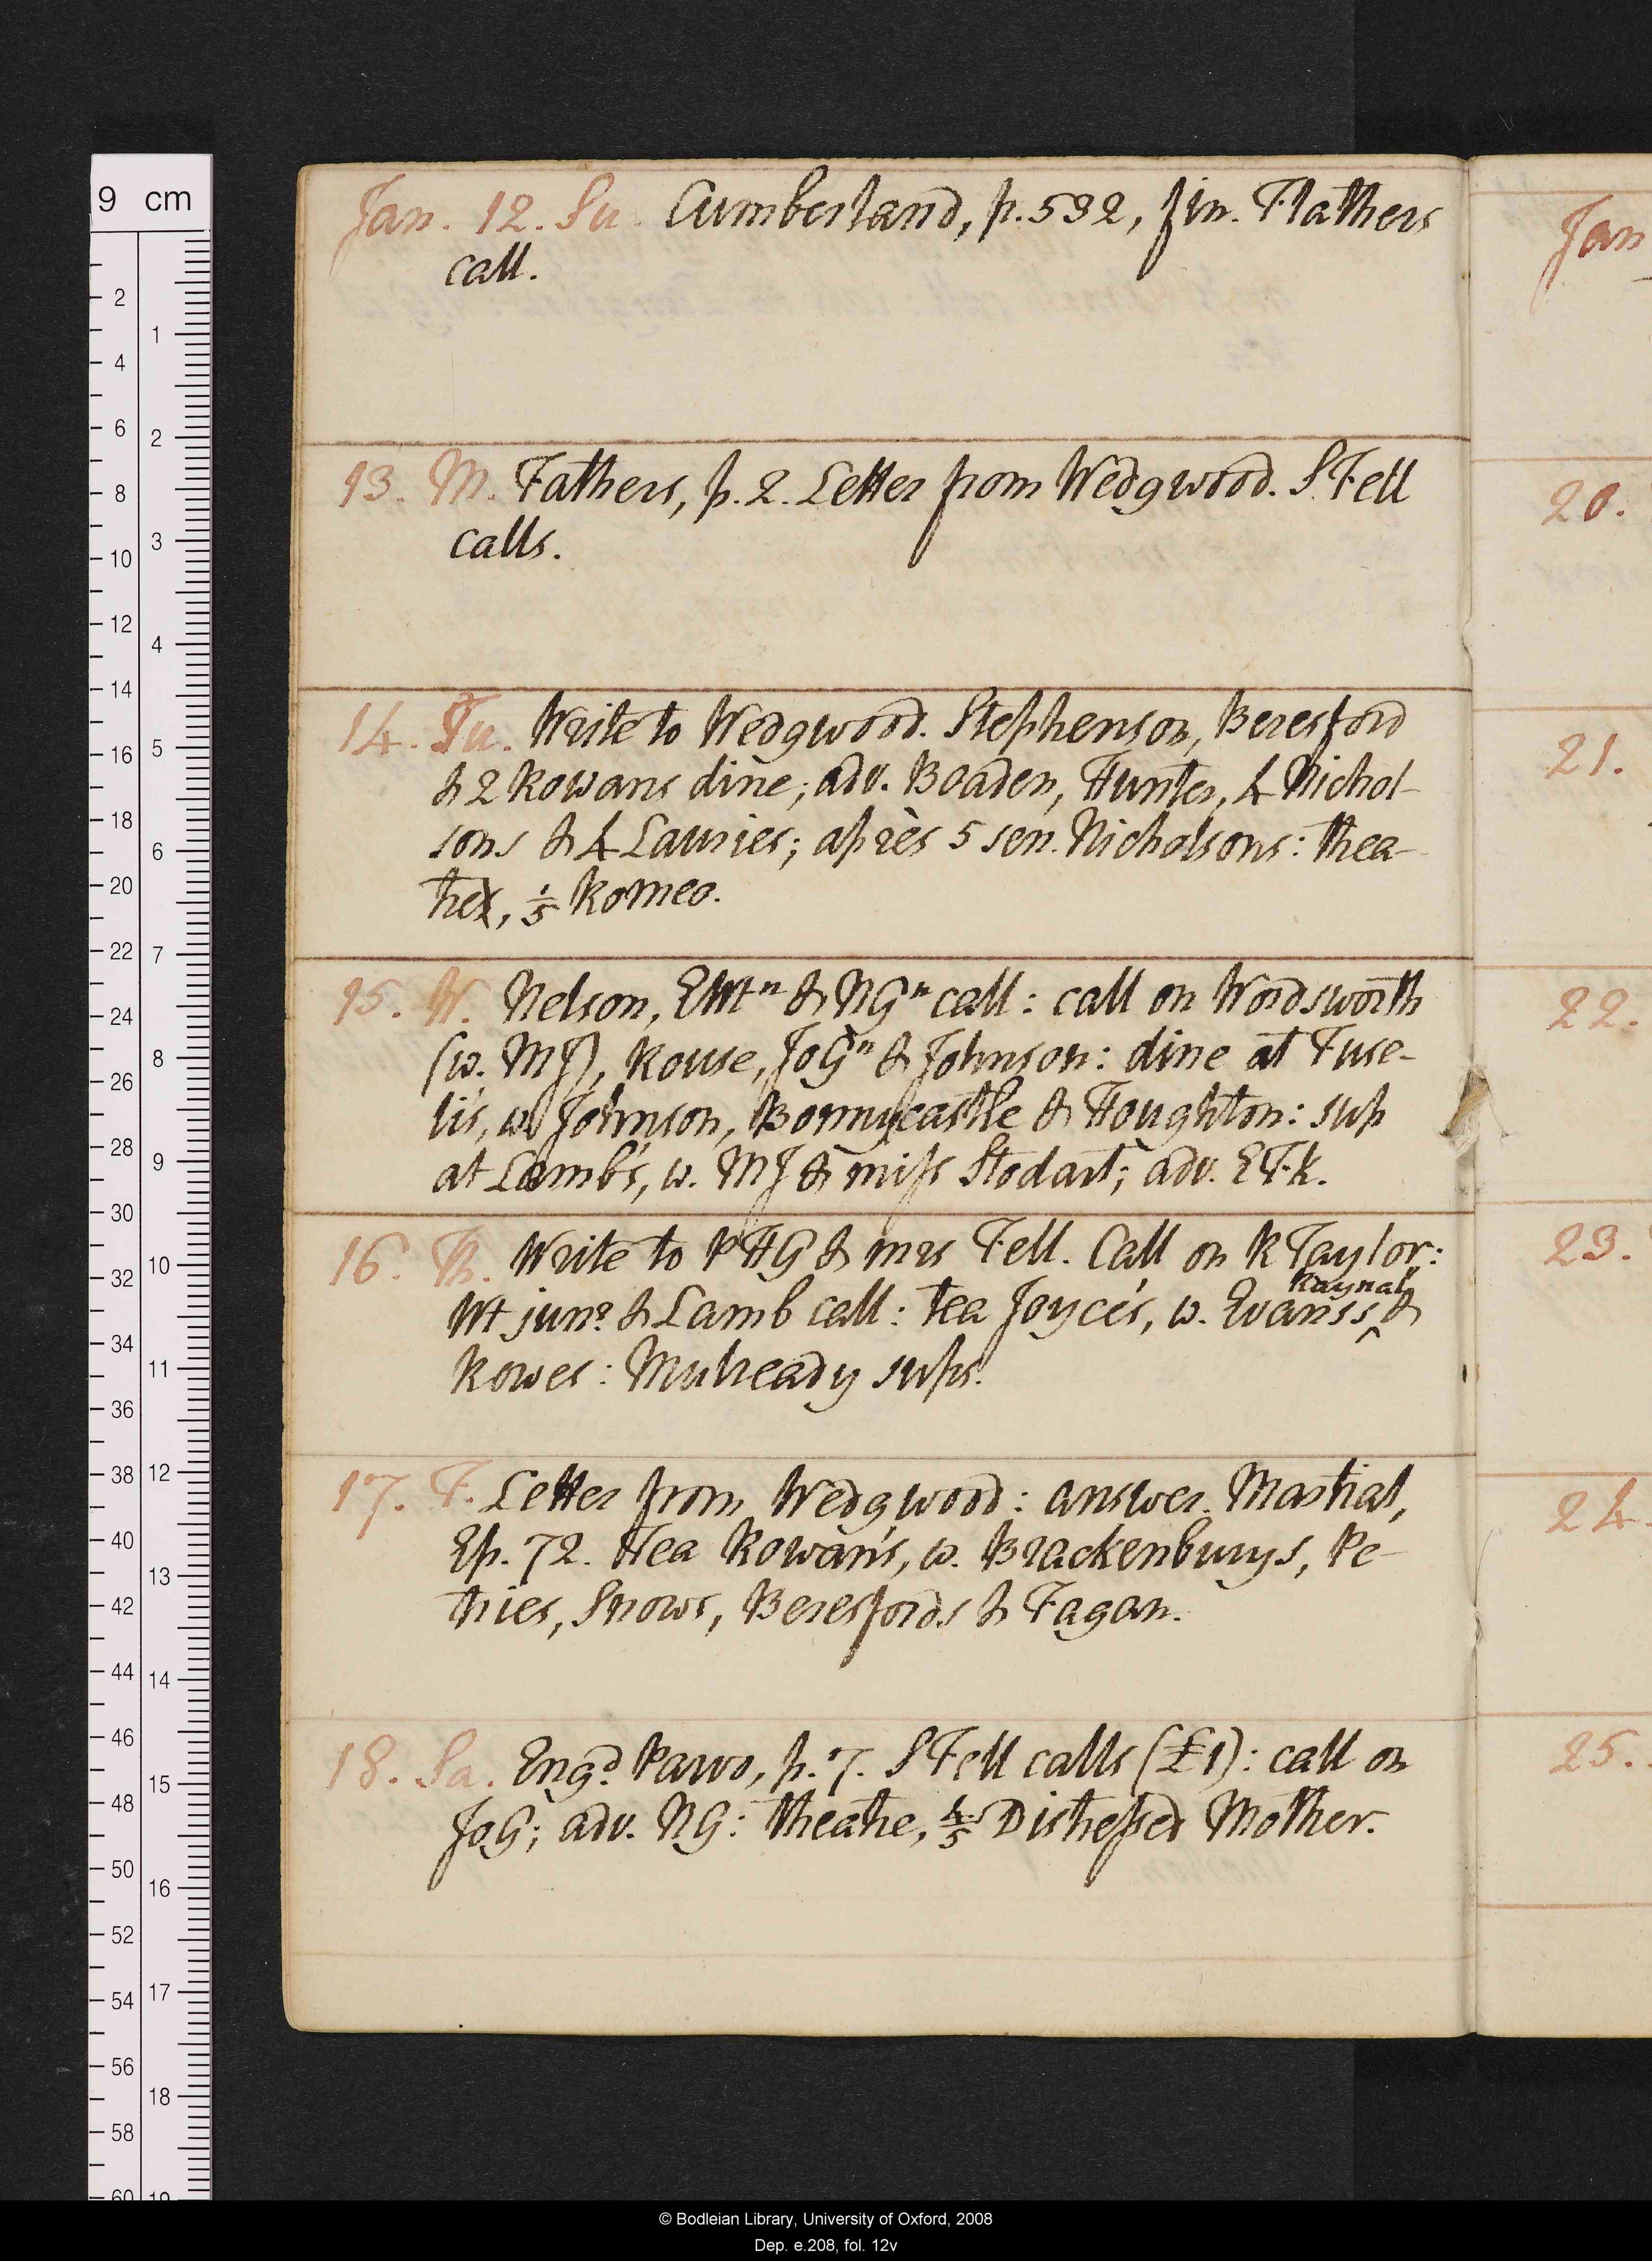 9 cm
Jan. 12. Su. Cumberland, p. 532, fin. Flathers
call.
13. M. Fathers, p. 2. Letter from Wedgwood. S Fell
calls.
14. Tu. Write to Wedgwood. Stephenson, Beresford
& 2 Rowans dine; adv. Boaden, Hunter, 4 Nichol-
sons & 4 Lauries; après 5 sen. Nicholsons: thea-
tre, 1/5 Romeo.
15. W. Nelson, EMtn & NGn call: call on Wordsworth
(w. MJ), Rouse, JoGn & Johnson: dine at Fuse-
li's, w. Johnson, Bonnycastle & Houghton: sup
at Lamb's, w. MJ & miss Stodart; adv. EFK.
16. Th. Write to PHG & mrs Fell. Call on R Taylor:
Wt junr & Lamb call: tea Joyce's, w. Evanss, Raynal, &
Rowes: Mulready sups.
17. F. Letter from Wedgwood: answer. Martial,
Ep. 72. Tea Rowan's, w. Brackenburys, Pe-
tries, Snows, Beresfords & Fagan.
18. Sa. Engd Parvo, p. 7. S Fell calls (£1): call on
JoG; adv. NG: theatre, 4/5 Distressed Mother.
Jan
20.
21.
22.
23.
24.
25.
© Bodleian Library, University of Oxford, 2008
Dep. e.208, fol. 12v